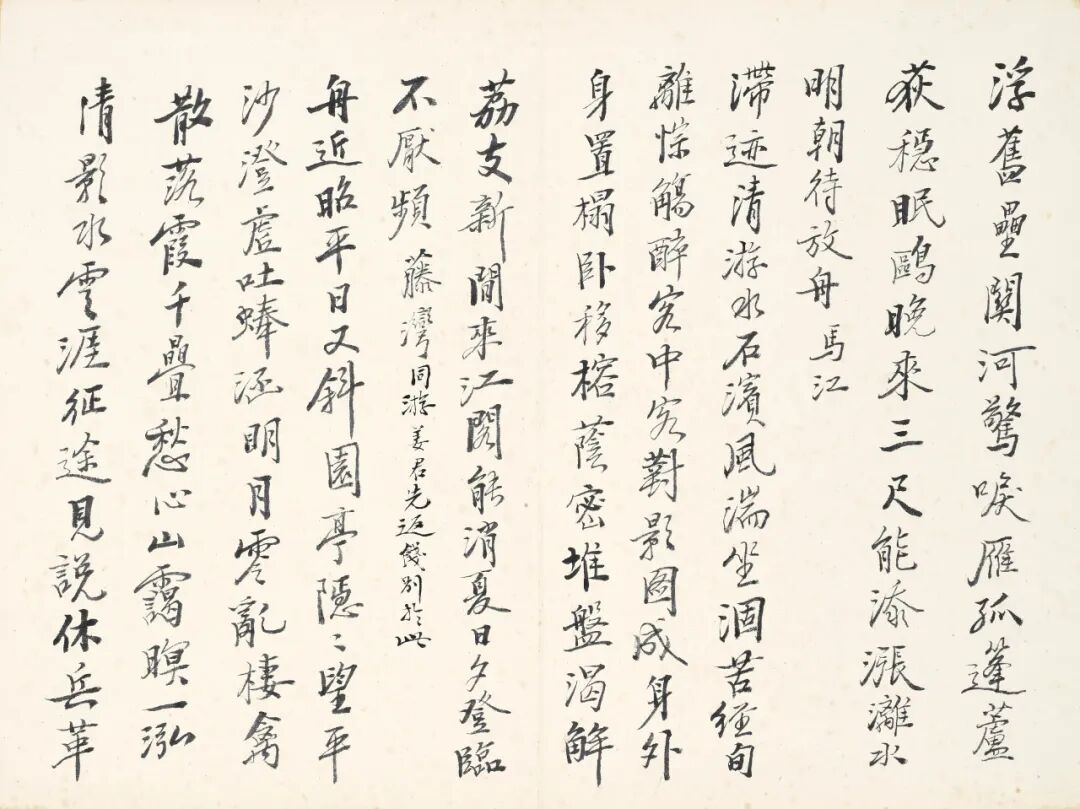 浮舊壘關河驚唳雁孤蓬蘆
荻穩眠鷗晚來三尺能添漲灕水
明朝待放舟 馬江
滯迹清游水石濱風湍坐涸苦經旬
離悰觴醉客中客對影圖成身外
身置榻卧移榕蔭密堆盤渴解
荔支新閒來江閣能消夏日夕登臨
不厭頻 藤灣同游姜君先返餞別於此
舟近昭平日又斜園亭隱〻望平
沙澄虛吐蜯涵明月零亂棲禽
散落霞千疊愁心山靄暝一泓
清影水雲涯征途見説休兵革